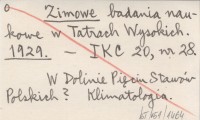 Zimowe badania nau-
kowe w Tatrach Wysokich.
1929. — IKC 20, nr 28
W Dolinie Pięciu Stawów
Polskich? Klimatologia.